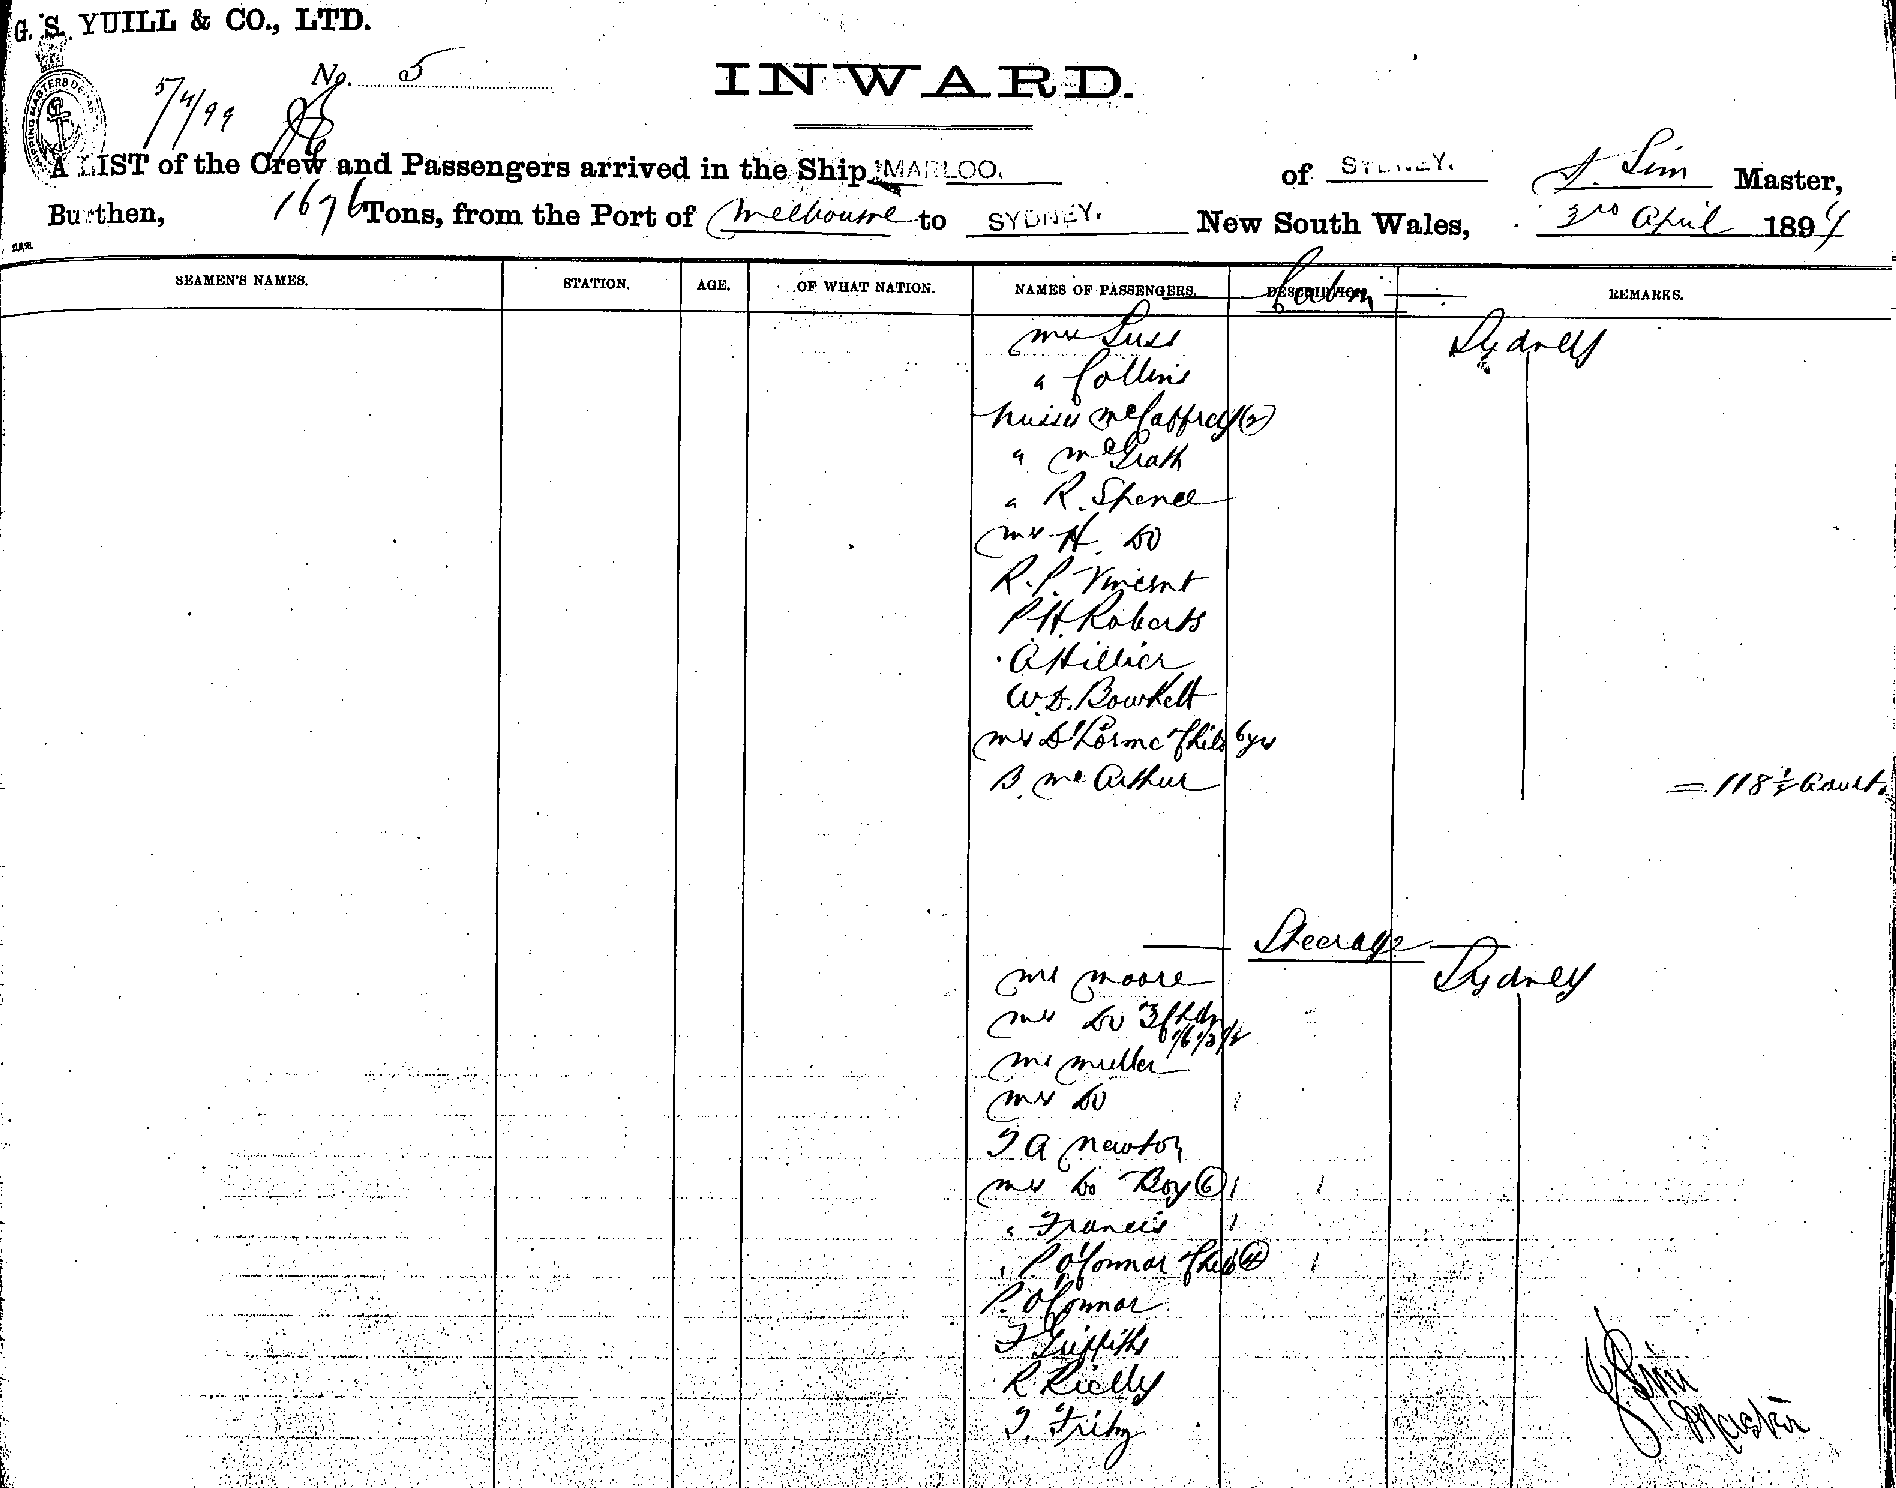 G. S. YUILL & CO., LTD.
No. 5
INWARD.
5/4/99
A LIST of the Crew and Passengers arrived in the Ship MARLOO. of SYDNEY. J. Sim Master,
Burthen, 1676 Tons, from the Port of Melbourne to SYDNEY. New South Wales, 3rd April 189
SEAMEN'S NAMES. STATION. AGE. OF WHAT NATION. NAMES OF PASSENGERS. DESCRIPTION. REMARKS.
Cabin
Mrs Luss Sydney
" Collins
Misses McCaffrey (2)
" McGrath
" R. Spence
Mrs H. Do
R. P. Vincent
P H. Roberts
A Hillier
W. D. Bowkett
Mrs Child 6 yrs
B. McArthur
= 118 ½
Steerage
Mr Moore Sydney
Mrs Do 3 Chdn
Mr Muller
Mrs Do
T A Newton
Mrs Do Boy (6)
" Francis
" P O'Connor Child (4)
P. O'Connor
T Griffiths
R Rielly
T.
J. Sim
Master